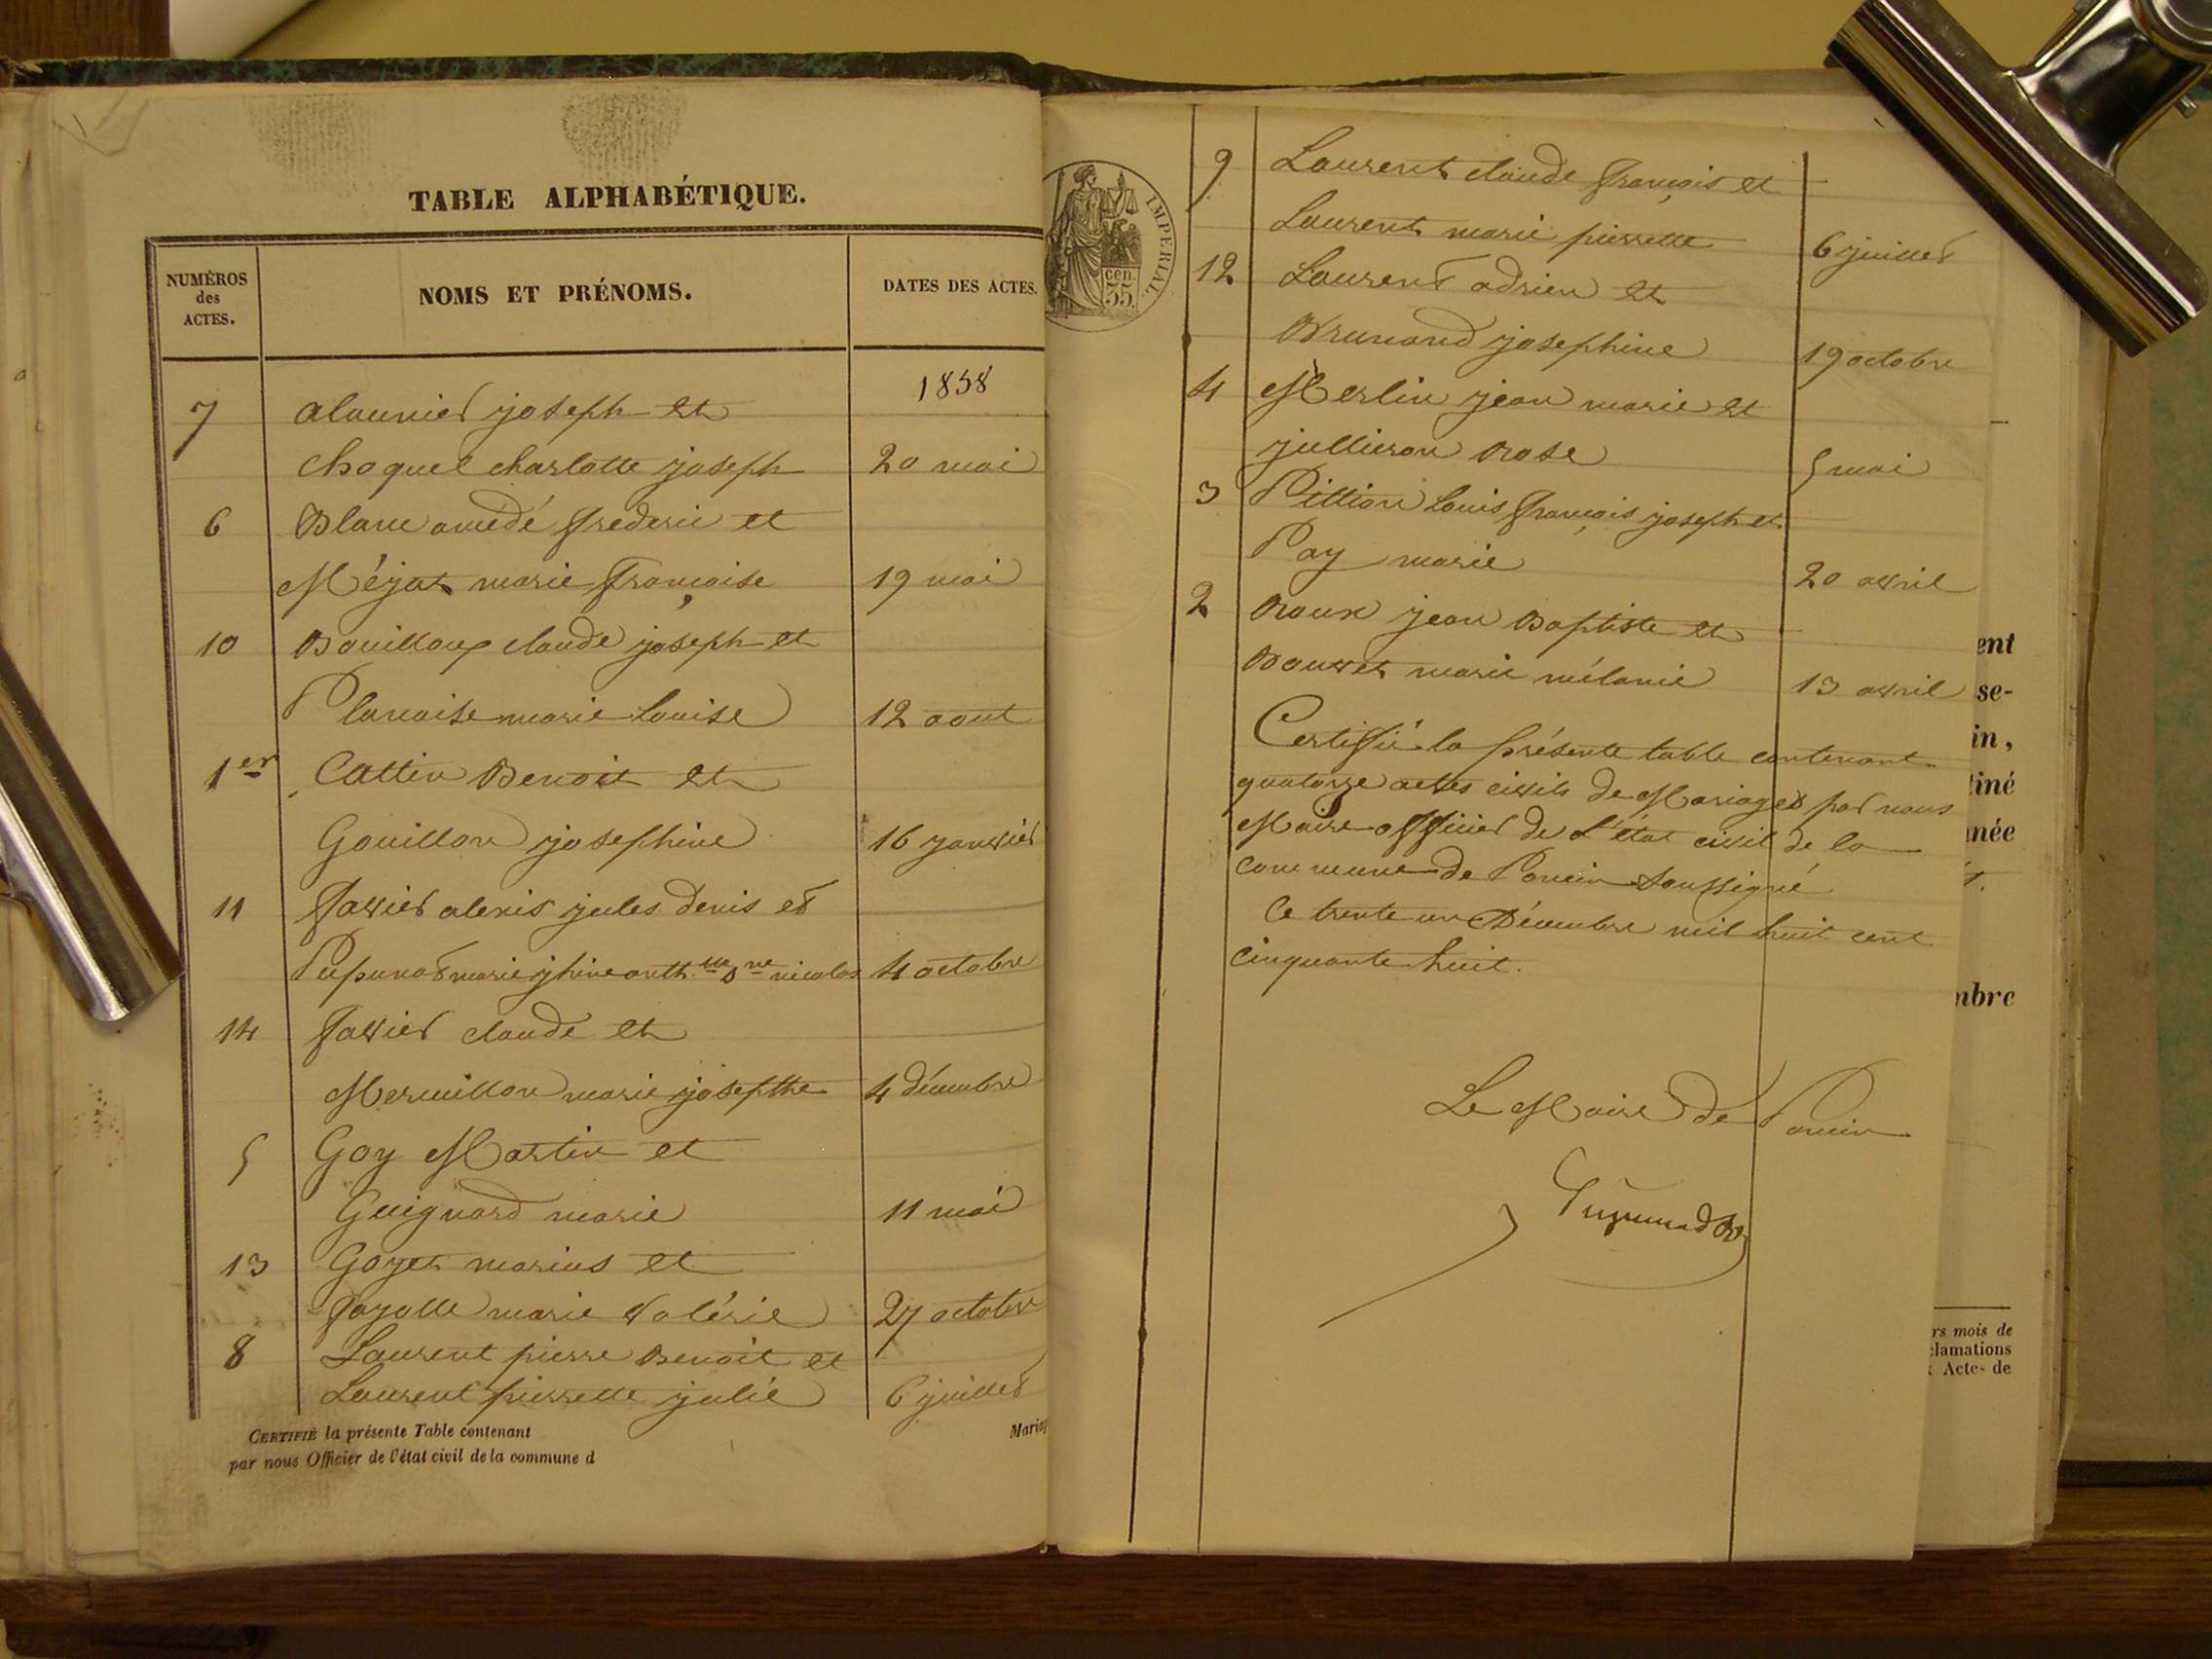 TABLE ALPHABÉTIQUE.
NUMÉROS
des
ACTES.
NOMS ET PRÉNOMS.
DATES DES ACTES.
1858
7 alaunier joseph et
choquel charlotte joseph 20 mai
6 Blanc amedé frederic et
Méjat marie françoise 19 mai
10 Bouilloux claude joseph et
Planaise marie Louise 12 aout
1er Cattin Benoit et
Gouillon josephine 16 janvier
11 favier alexis jules denis et
marie nicolas 4 octobre
14 favier claude et
Mermillon marie josepthe 4 décembre
5 Goy Martin et
Guignard marie 11 mai
13 Goyet marius et
fayolle marie valérie 27 octobre
8 Laurent pierre Benoit et
Laurent pierrette julie 6 juillet
CERTIFIÉ la présente Table contenant
par nous Officier de l'état civil de la commune d
IMPÉRIAL.
cen.
35.
9 Laurent claude françois et
Laurent marie pierrette 6 juillet
12 Laurent adrien et
Brunand josephine 19 octobre
4 Merlin jean marie et
jullieron Rose 5 mai
3 Pittion Louis françois joseph et
Pay marie 20 avril
2 Roux jean Baptiste et
Bouvet marie mélanie 13 avril
Certifié la présente table contenant
quatorze actes civils de Mariages par nous
Maire officier de L'état civil de la
commune de Poncin soussigné
Ce trente un Décembre mil huit cent
cinquante huit.
Le Maire de Poncin
ent
se-
in,
tiné
nnée
mbre
rs mois de
clamations
Actes de